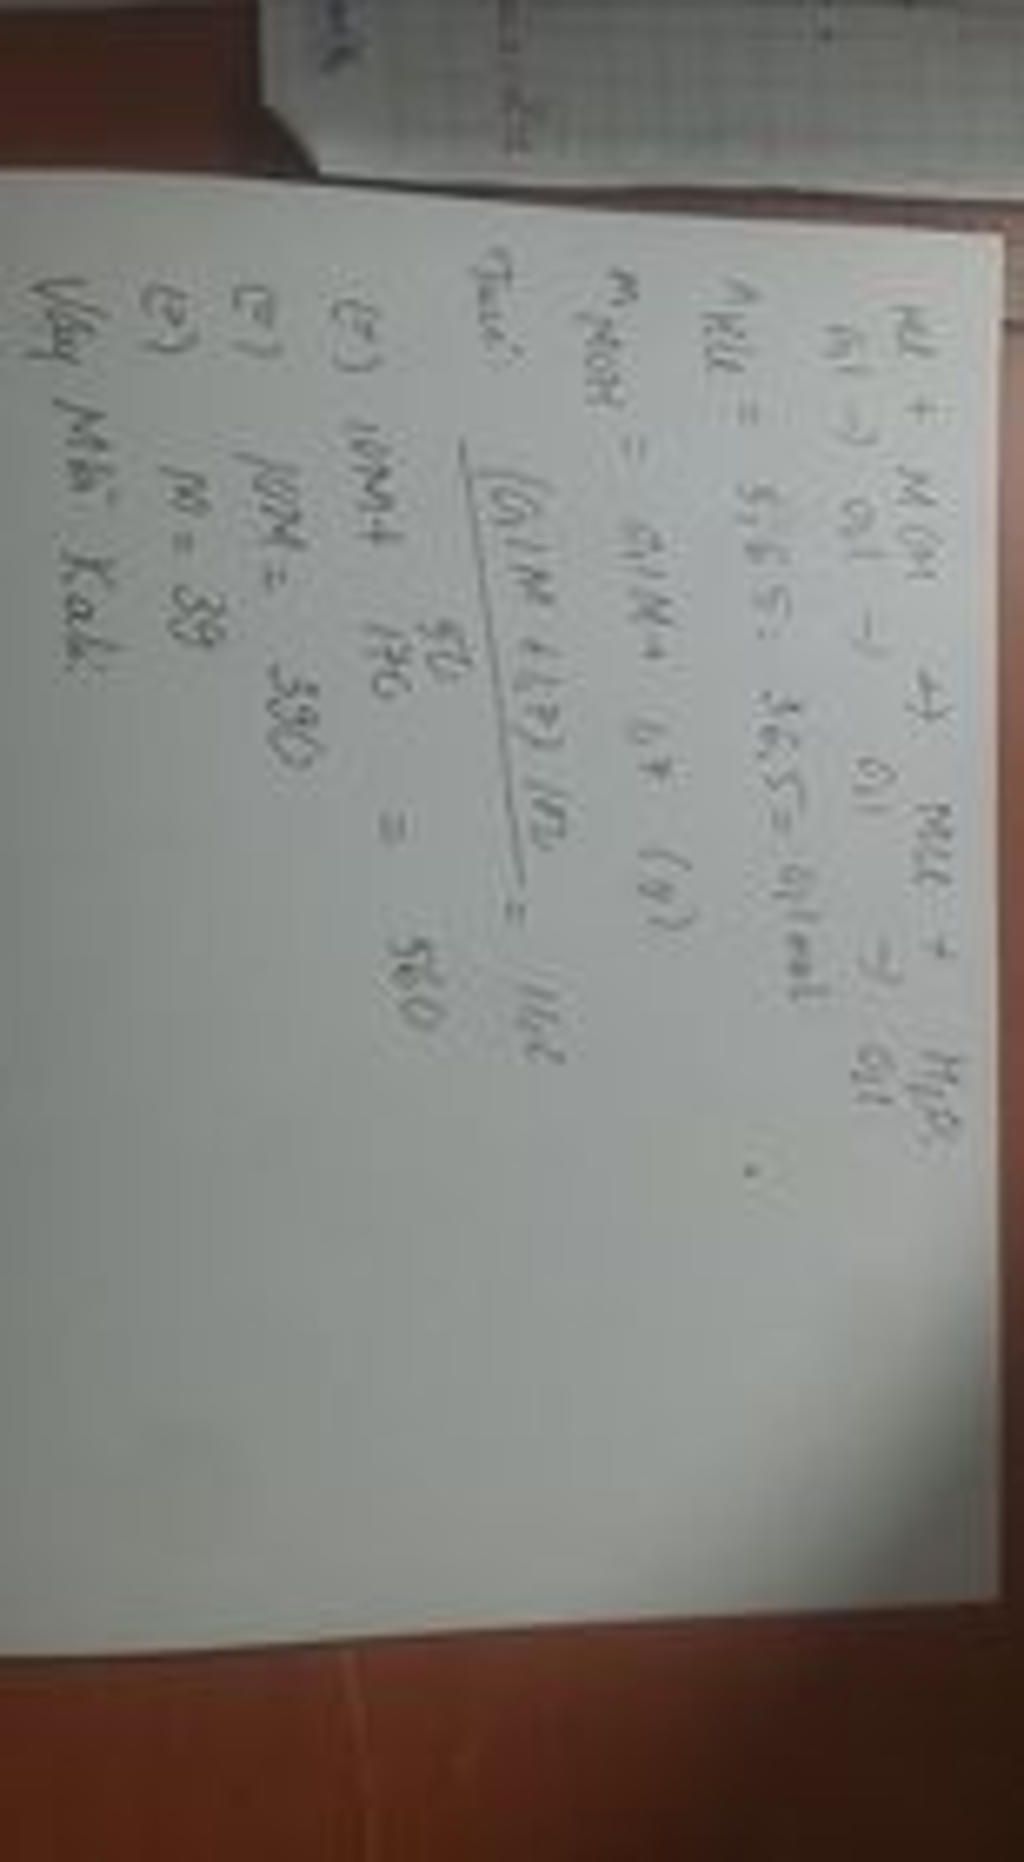 HCl + MOH → MCl + H₂O
0,1 → 0,1 → 0,1 → 0,1
nHCl = 3,65 : 36,5 = 0,1 mol
mMOH = 0,1M + 1,7 (g)
(0,1M + 1,7) 100 / 50 = 11,2
(=) 10M + 170 = 560
(=) 10M = 390
(=) M = 39
Vậy M là Kali